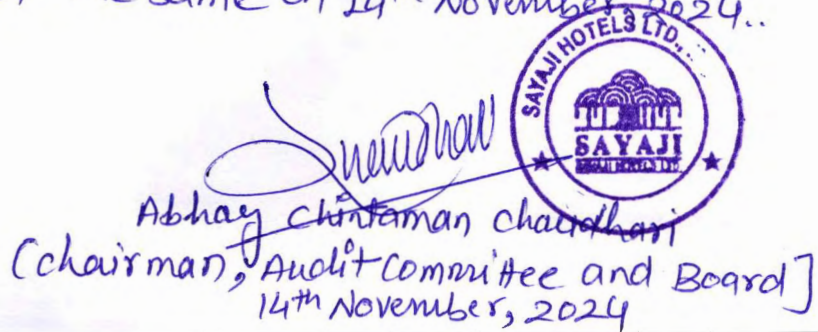 on 14th November, 2024..
SAYAJI HOTELS LTD.,
SAYAJI
Abhay Chintaman Chaudhari
(Chairman, Audit Committee and Board]
14th November, 2024